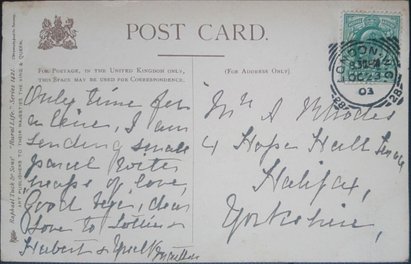 POST CARD.
FOR POSTAGE, IN THE UNITED KINGDOM ONLY,
THIS SPACE MAY BE USED FOR CORRESPONDENCE.
(FOR ADDRESS ONLY.)
Raphael Tuck & Sons' "Rural Life." Series 1421.
ART PUBLISHERS TO THEIR MAJESTIES THE KING & QUEEN.
LONDON
OC 23
03
Only time for
a line, I am
sending small
parcel with
heaps of love,
Good bye, dear
love to
Hubert &
A Rhodes
4 Hope Hall
Halifax,
Yorkshire,